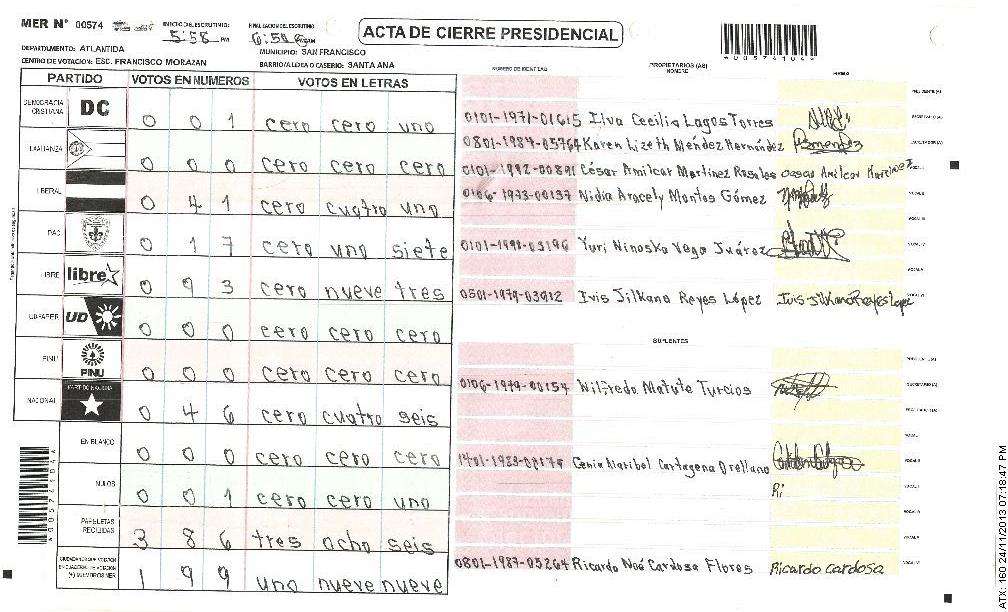 MER N° 00574
INICIO DEL ESCRUTINIO: 5:58 PM
FINALIZACION DEL ESCRUTINIO
ACTA DE CIERRE PRESIDENCIAL
DEPARTAMENTO: ATLANTIDA
MUNICIPIO: SAN FRANCISCO
CENTRO DE VOTACION: ESC. FRANCISCO MORAZAN
BARRIO/ALDEA O CASERIO: SANTA ANA
*00574104*
PARTIDO VOTOS EN NUMEROS VOTOS EN LETRAS
NUMERO DE IDENTIDAD PROPIETARIOS (AS) NOMBRE FIRMA
DEMOCRACIA CRISTIANA DC 0 0 1 cero cero uno
LA ALIANZA 0 0 0 cero cero cero
LIBERAL 0 4 1 cero cuatro uno
PAC 0 1 7 cero uno siete
LIBRE libre 0 9 3 cero nueve tres
UD-FAPER UD 0 0 0 cero cero cero
PINU PINU 0 0 0 cero cero cero
NACIONAL PARTIDO NACIONAL 0 4 6 cero cuatro seis
EN BLANCO 0 0 0 cero cero cero
NULOS 0 0 1 cero cero uno
PAPELETAS RECIBIDAS 3 8 6 tres ocho seis
1 9 9 uno nueve nueve
0101-1971-01615 Ilva Cecilia Lagos Torres
0801-1987-05764 Karen Lizeth Mendez Hernández
0101-1992-00891 César Amilcar Martinez Rosales
0106-1973-00137 Nidia Aracely Montes Gómez
Yuri Ninoska Vega Juárez
Ivis Jilkana Reyes López Ivis Jilkana Reyes Lopez
SUPLENTES
0106-1979-00154 Wilfredo Matute Turcios
Cenia Maribel Cartagena Orellana
Ri
0801-1987-05264 Ricardo Noé Cardosa Flores Ricardo Cardosa
*00574104*
ATX: 160 24/11/2013 07:18:47 PM